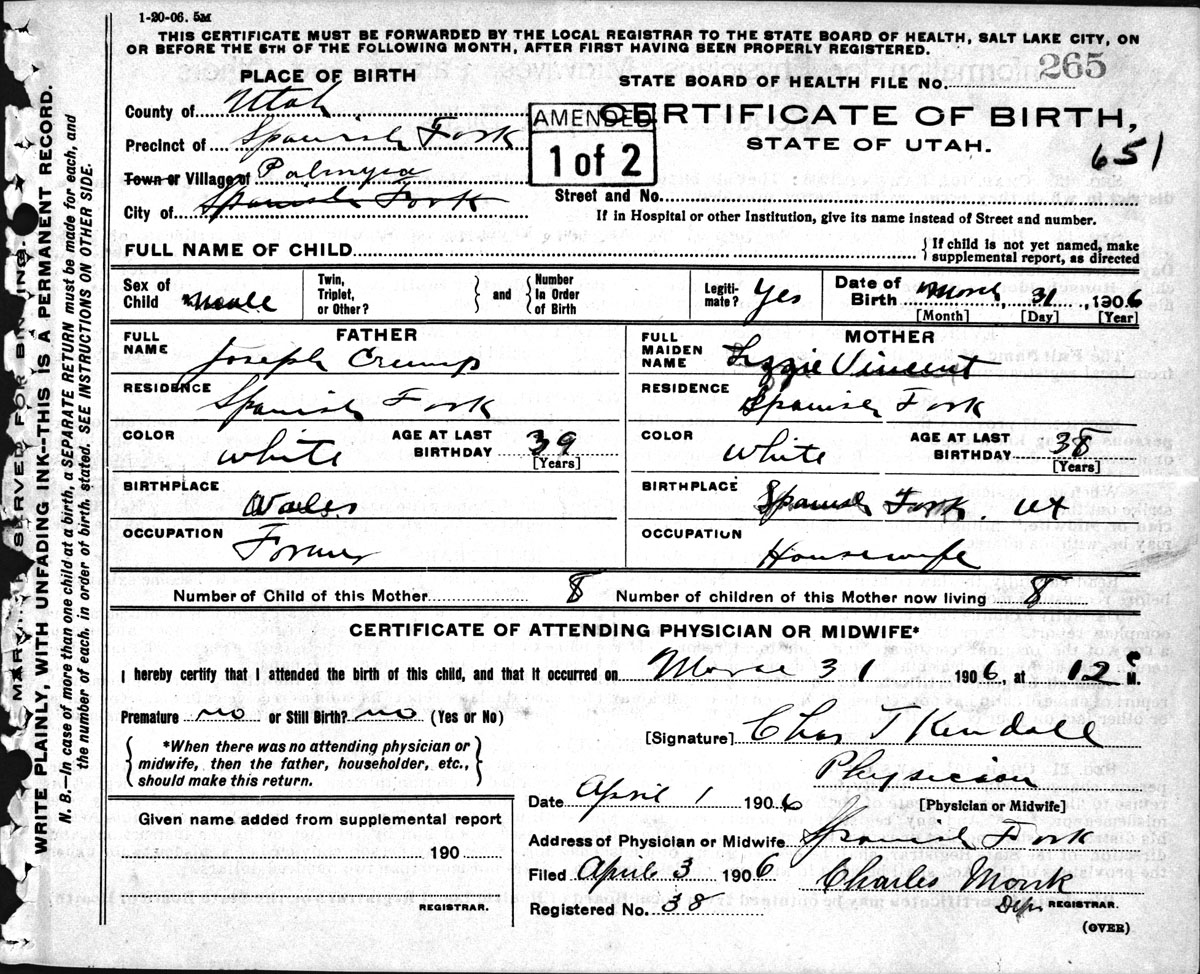 1-20-06. 5M
THIS CERTIFICATE MUST BE FORWARDED BY THE LOCAL REGISTRAR TO THE STATE BOARD OF HEALTH, SALT LAKE CITY, ON
OR BEFORE THE 5TH OF THE FOLLOWING MONTH, AFTER FIRST HAVING BEEN PROPERLY REGISTERED.
PLACE OF BIRTH
STATE BOARD OF HEALTH FILE No. 265
County of Utah
AMENDED
1 of 2
CERTIFICATE OF BIRTH,
STATE OF UTAH.
651
Precinct of Spanish Fork
Town or Village of Palmyra
City of Spanish Fork
Street and No.
If in Hospital or other Institution, give its name instead of Street and number.
FULL NAME OF CHILD
{ If child is not yet named, make
supplemental report, as directed
Sex of Child Male
Twin, Triplet, or Other?
{ } and { Number In Order of Birth
Legitimate? Yes
Date of Birth March, 31, 1906
[Month] [Day] [Year]
FATHER
FULL NAME Joseph Crump
RESIDENCE Spanish Fork
COLOR White
AGE AT LAST BIRTHDAY 39
[Years]
BIRTHPLACE Wales
OCCUPATION Farmer
MOTHER
FULL MAIDEN NAME Lizzie Vincent
RESIDENCE Spanish Fork
COLOR White
AGE AT LAST BIRTHDAY 38
[Years]
BIRTHPLACE Spanish Fork. Ut
OCCUPATION Housewife
Number of Child of this Mother 8
Number of children of this Mother now living 8
CERTIFICATE OF ATTENDING PHYSICIAN OR MIDWIFE*
I hereby certify that I attended the birth of this child, and that it occurred on 31 1906, at 12 M.
Premature no or Still Birth? no (Yes or No)
{ *When there was no attending physician or
midwife, then the father, householder, etc.,
should make this return. }
[Signature] Chas T Kendall
Physician
[Physician or Midwife]
Date April 1 1906
Address of Physician or Midwife Spanish Fork
Filed April 3 1906 Charles Monk
Dep. REGISTRAR.
Registered No. 38
(OVER)
Given name added from supplemental report
190
REGISTRAR.
SERVED FOR BINDING
WRITE PLAINLY, WITH UNFADING INK--THIS IS A PERMANENT RECORD.
N. B.—In case of more than one child at a birth, a SEPARATE RETURN must be made for each, and
the number of each, in order of birth, stated. SEE INSTRUCTIONS ON OTHER SIDE.